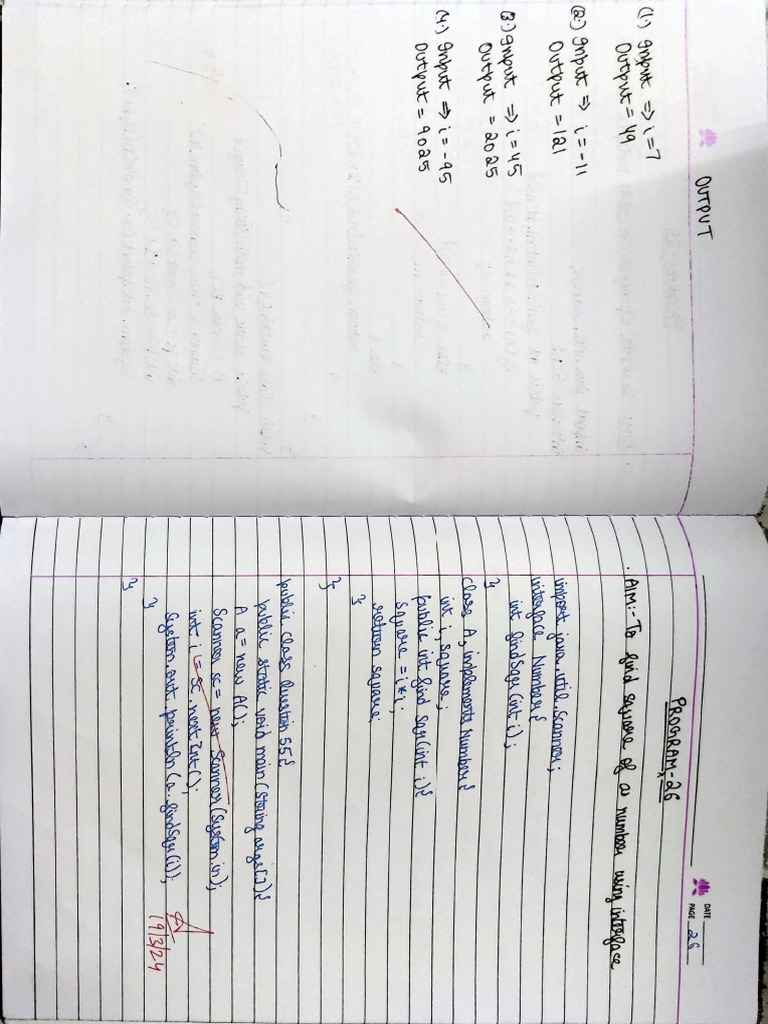 OUTPUT
(1.) Input => i=7
Output = 49
(2.) Input => i = -11
Output = 121
(3.) Input => i = 45
Output = 2025
(4.) Input => i = -95
Output = 9025
DATE
PAGE 26
PROGRAM-26
AIM:- To find square of a number using interface
import java.util.Scanner;
interface Number{
int findSqr(int i);
}
class A, implements Number{
int i, square;
public int find Sqr(int i){
square = i*i;
return square;
}
}
public class Question 55{
public static void main(String args[]){
A a = new A();
Scanner sc = new Scanner(System.in);
int i = sc.nextInt();
System.out.println(a.findSqr(i));
}
}
19/3/24